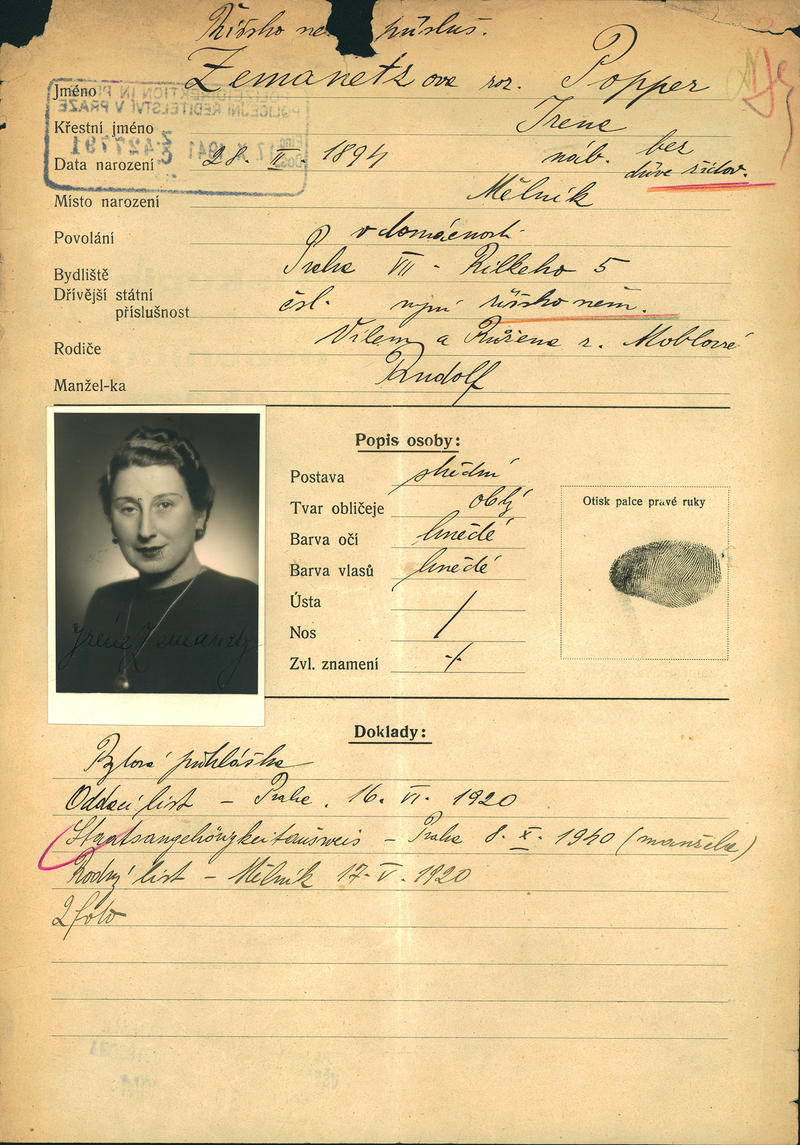 Říšsko ně přísluš.
Jméno Zemanetzova roz. Popper
Křestní jméno Irena
Data narození 28. II. 1894 náb. bez
dříve židov.
Místo narození Mělník
Povolání v domácnosti
Bydliště Praha VII - Rilkeho 5
Dřívější státní
příslušnost čsl. nyní říšsko něm.
Rodiče Vilém a Růžena r.
Manžel-ka Rudolf
POLICEJNÍ ŘEDITELSTVÍ V PRAZE
1941 427791
Popis osoby:
Postava střední
Tvar obličeje oblý
Barva očí hnědé
Barva vlasů hnědé
Ústa /
Nos /
Zvl. znamení -/-
Otisk palce pravé ruky
Irene Zemanetz
Doklady:
Bytová přihláška
Oddací list - Praha, 16. VI. 1920
Staatsangehörigkeitausweis - Praha 8. X. 1940 (manžela)
Rodný list - Mělník 17. V. 1920
2 foto